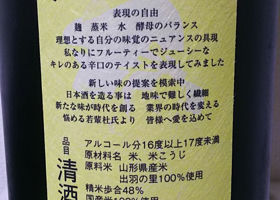 表現の自由
麹 蒸米 水 酵母のバランス
理想とする自分の味覚のニュアンスの具現
私なりにフルーティーでジューシーな
キレのある辛口のテイストを表現してみました
新しい味の提案を模索中
日本酒を造る事は 地味で難しく繊細
新たな味が時代を創る 業界の時代を変える
悩める若輩杜氏より 皆様へ愛を込めて
品目 清酒
アルコール分16度以上17度未満
原材料名 米、米こうじ
原料米 山形県産米
出羽の里100%使用
精米歩合48%
国産米100%使用